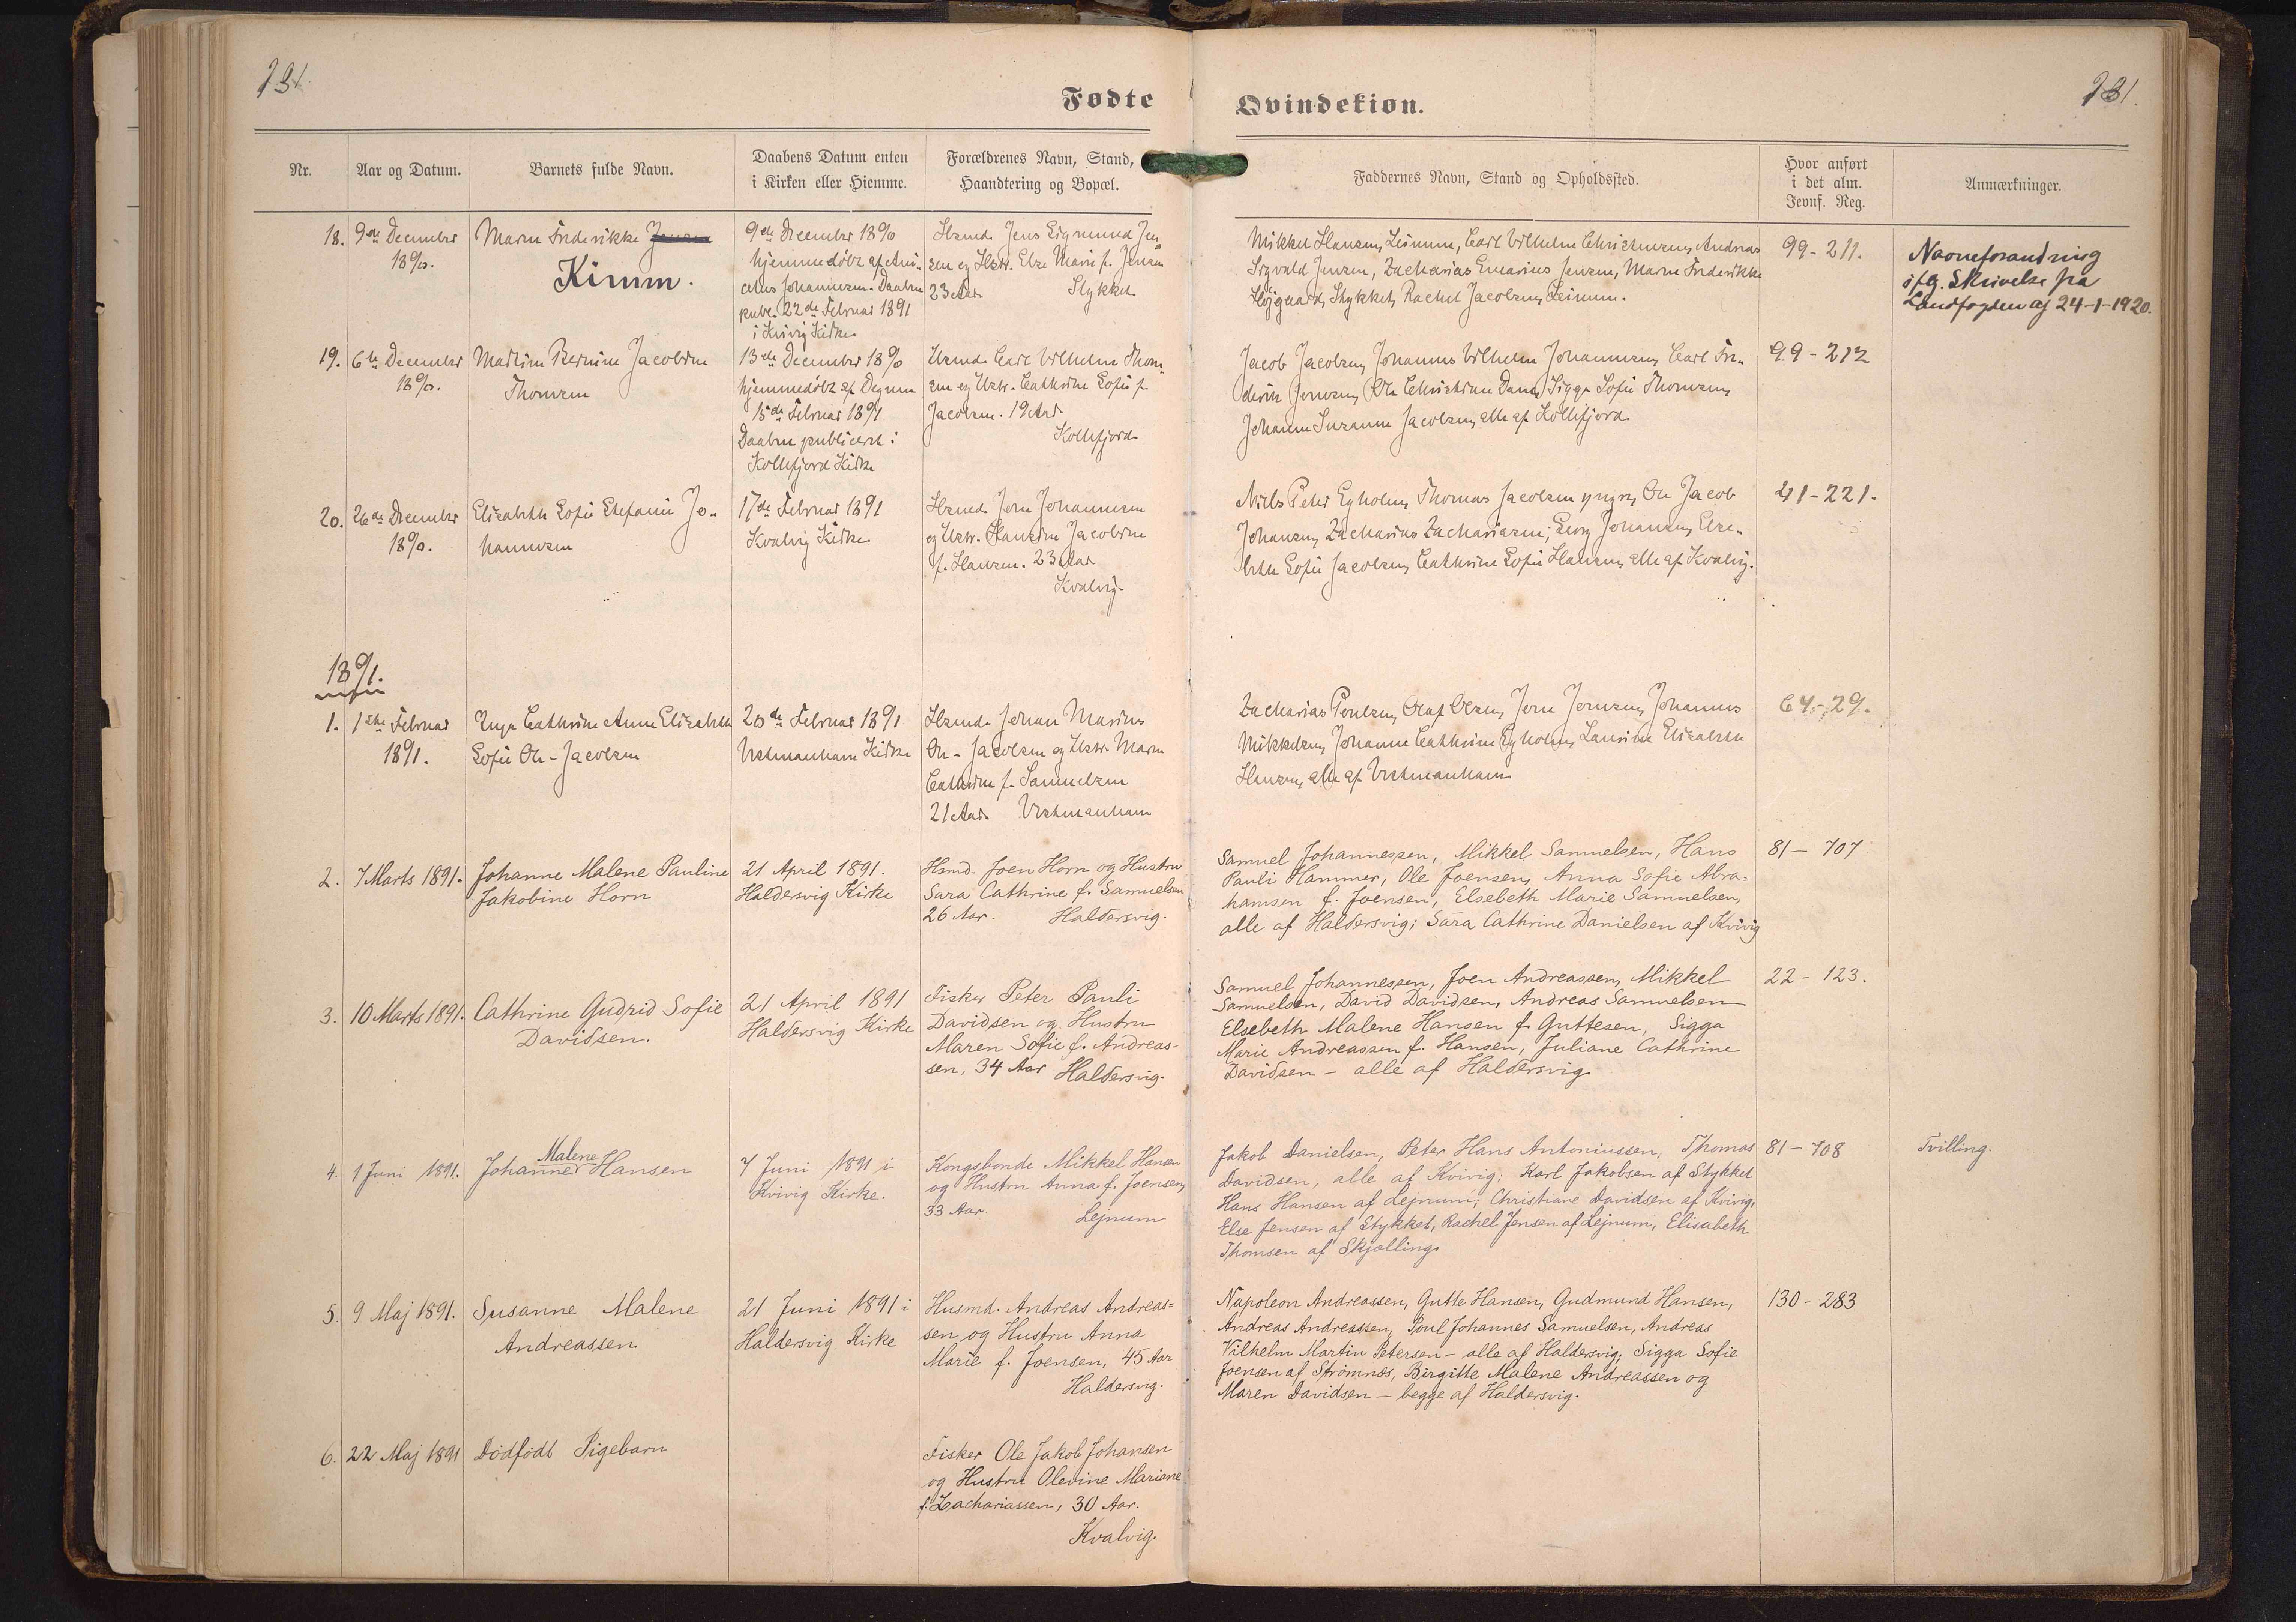 231.
Fødte
Qvindekiøn.
231.
Nr.
Aar og Datum.
Barnets fulde Navn.
Daabens Datum enten
i Kirken eller Hiemme.
Forældrenes Navn, Stand,
Haandtering og Bopæl.
Faddernes Navn, Stand og Opholdssted.
Hvor anført
i det alm.
Jevnf. Reg.
Anmærkninger.
18.
9de December
1890.
Maren Frederikke Jensen
Kimm.
9de December 1890
hjemmedøbt af
Johannesen. Daaben
publ. 22de Februar 1891
i Kvivig Kirke
Hsmd. Jens Sigmund Jen-
sen og Hstr. Else Marie f. Jensen
23 Aar. Stykket.
Mikkel Hansen, Leinum, Carl Vilhelm Christensen, Andreas
Sigvald Jensen, Zacharias Enearius Jensen, Maren Frederikke
Højgaard, Stykket, Rachel Jacobsen, Leinum.
99-211.
Navneforandring
ifg. Skrivelse fra
Landfogden af 24-1-1920.
19.
6te December
1890.
Madline Jacobine
Thomsen
13de December 1890
hjemmedøbt af Degnen
15de Februar 1891
Daaben publiceret i
Kollefjord Kirke
Hsmd. Carl Vilhelm Thom-
sen og Hstr. Cathrine Sofie f.
Jacobsen. 19 Aar.
Kollefjord.
Jacob Jacobsen, Johannes Vilhelm Johannesen, Carl Fre-
derik Joensen, Ole Christian Dam, Sigga Sofie Thomsen,
Johanne Susanne Jacobsen, alle af Kollefjord.
99-212
20.
26de December
1890.
Elisabeth Sofie Stefanie Jo-
hannesen
17de Februar 1891
Kvalvig Kirke
Hsmd. Joen Johannesen
og Hstr. Hansine Jacobine
f. Hansen. 23 Aar
Kvalvig.
Niels Peter Egholm, Thomas Jacobsen yngre, Ole Jacob
Johansen, Zacharias Zachariasen, Georg Johansen, Else-
beth Sofie Jacobsen, Cathrine Sofie Hansen, alle af Kvalvig.
41-221.
1891.
1.
1ste Februar
1891.
Inga Cathrine Anne Elisabeth
Sofie Ole-Jacobsen
20de Februar 1891
Vestmanhavn Kirke
Hsmd. Johan Marius
Ole-Jacobsen og Hstr. Maren
Cathrine f. Samuelsen
21 Aar. Vestmanhavn
Zacharias Poulsen, Olaf Olsen, Joen Joensen, Johannes
Mikkelsen, Johanne Cathrine Egholm, Laurine Elisabeth
Hansen, alle af Vestmanhavn
64-29.
2.
7 Marts 1891.
Johanne Malene Pauline
Jakobine Horn
21 April 1891.
Haldersvig Kirke
Hsmd. Joen Horn og Hustru
Sara Cathrine f. Samuelsen
26 Aar. Haldersvig.
Samuel Johannessen, Mikkel Samuelsen, Hans
Pauli Hammer, Ole Joensen, Anna Sofie Abra-
hamsen f. Joensen, Elsebeth Marie Samuelsen,
alle af Haldersvig; Sara Cathrine Danielsen af Kvivig
81-707
3.
10 Marts 1891.
Cathrine Gudrid Sofie
Davidsen.
21 April 1891
Haldersvig Kirke
Fisker Peter Pauli
Davidsen og Hustru
Maren Sofie f. Andreas-
sen, 34 Aar Haldersvig.
Samuel Johannessen, Joen Andreassen, Mikkel
Samuelsen, David Davidsen, Andreas Samuelsen
Elsebeth Malene Hansen f. Guttesen, Sigga
Marie Andreassen f. Hansen, Juliane Cathrine
Davidsen - alle af Haldersvig.
22-123.
4.
1 Juni 1891.
Malene
Johanne Hansen
7 Juni 1891 i
Kvivig Kirke.
Kongsbonde Mikkel Hansen
og Hustru Anna f. Joensen,
33 Aar. Lejnum
Jakob Danielsen, Peter Hans Antoniussen, Thomas
Davidsen, alle af Kvivig; Karl Jakobsen af Stykket
Hans Hansen af Lejnum; Christiane Davidsen af Kvivig,
Else Jensen af Stykket, Rachel Jensen af Lejnum, Elisabeth
Thomsen af Skjælling.
81-708
Tvilling.
5.
9 Maj 1891.
Susanne Malene
Andreassen
21 Juni 1891 i
Haldersvig Kirke
Husmd. Andreas Andreas=
sen og Hustru Anna
Marie f. Joensen, 45 Aar
Haldersvig.
Napoleon Andreassen, Gutte Hansen, Gudmund Hansen,
Andreas Andreassen, Poul Johannes Samuelsen, Andreas
Vilhelm Martin Petersen - alle af Haldersvig; Sigga Sofie
Joensen af Strømnæs, Birgitte Malene Andreassen og
Maren Davidsen - begge af Haldersvig.
130-283
6.
22 Maj 1891
Dødfødt Pigebarn
Fisker Ole Jakob Johansen
og Hustru Olevine Mariane
f. Zachariassen, 30 Aar.
Kvalvig.